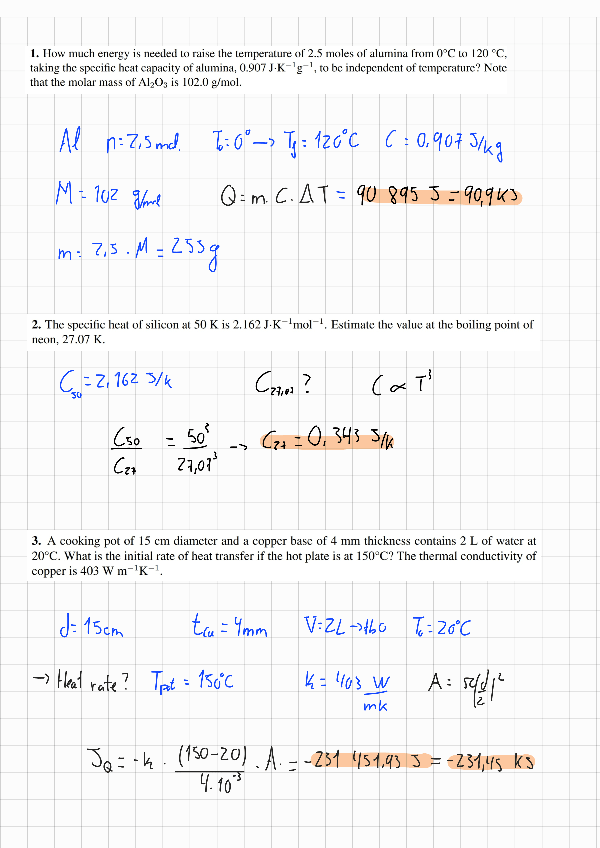 1. How much energy is needed to raise the temperature of 2.5 moles of alumina from 0°C to 120 °C,
taking the specific heat capacity of alumina, 0.907 J·K⁻¹g⁻¹, to be independent of temperature? Note
that the molar mass of Al₂O₃ is 102.0 g/mol.
Al n = 2,5 mol. T₀ = 0° → T_f = 120°C C = 0,907 J/kg
M = 102 g/mol Q = m. C. ΔT = 90 895 J = 90,9 KJ
m = 2,5 . M = 255 g
2. The specific heat of silicon at 50 K is 2.162 J·K⁻¹mol⁻¹. Estimate the value at the boiling point of
neon, 27.07 K.
C₅₀ = 2,162 J/k C₂₇,₀₇ ? C ∝ T³
C₅₀/C₂₇ = 50³/27,07³ → C₂₇ = 0,343 J/k
3. A cooking pot of 15 cm diameter and a copper base of 4 mm thickness contains 2 L of water at
20°C. What is the initial rate of heat transfer if the hot plate is at 150°C? The thermal conductivity of
copper is 403 W m⁻¹K⁻¹.
d = 15cm t_cu = 4mm V = 2L → H₂O T₀ = 20°C
→ Heat rate? T_pot = 150°C k = 403 W/mk A = π(d/2)²
J_Q = -k . (150-20)/4.10⁻³ . A. = -231 451,93 J = -231,45 KJ